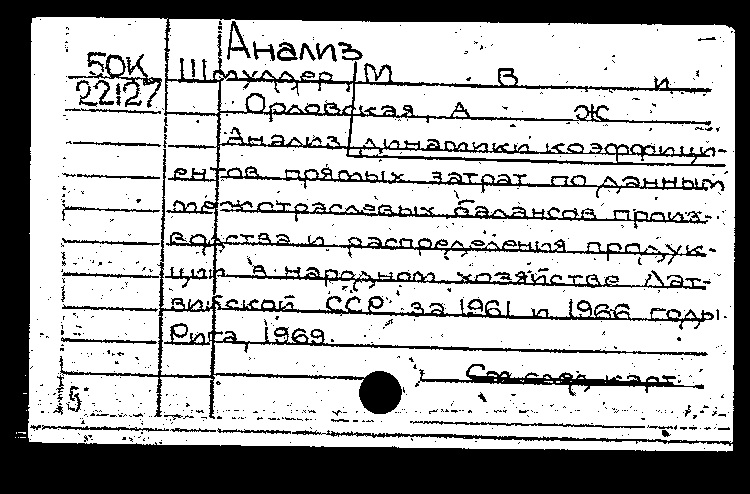 Анализ
50К Шмулдер, М В и
22127 Орловская, А Ж
Анализ динамики коэффици-
ентов прямых затрат по данным
межотраслевых балансов произ-
водства и распределения продук-
ции в народном хозяйстве Лат-
вийской ССР за 1961 и 1966 годы.
Рига, 1969.
См след. карт.
5